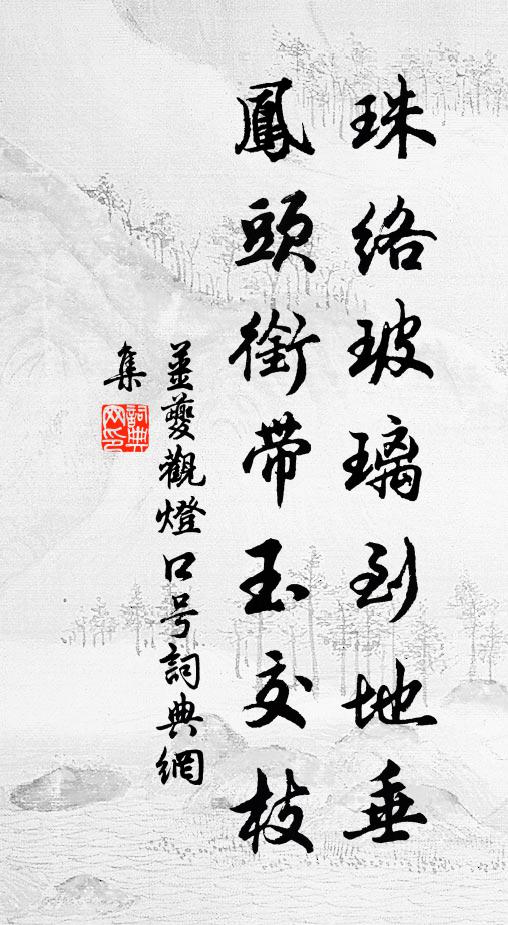 珠絡玻璃到地垂
鳳頭銜帶玉交枝
姜夔觀燈口号詞典網
集
詞典
网印